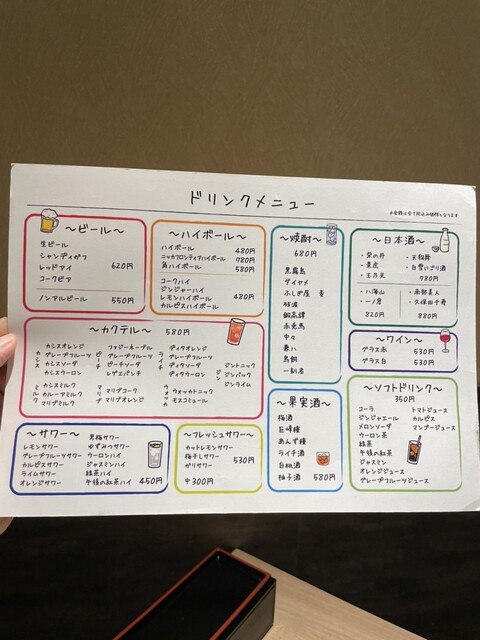 ドリンクメニュー
～ビール～
生ビール
シャンディガフ
レッドアイ 620円
コークビア
ノンアルビール 550円
～ハイボール～
ハイボール 480円
ニッカフロンティアハイボール 780円
角ハイボール 580円
コークハイ
ジンジャーハイ
レモンハイボール 480円
カルピスハイボール
～焼酎～
680円
黒霧島
ダイヤメ
中々
兼八
鳥飼
一刻者
～日本酒～
・菊の井
・天狗舞
・白雪にごり酒
780円
・八海山
・南部美人
・久保田千寿
820円
880円
～ワイン～
グラス赤 530円
グラス白 530円
～カクテル～ 580円
カシス
カシスオレンジ
グレープフルーツ
カシスソーダ
カシスウーロン
ピーチ
ファジーネーブル
グレープフルーツ
ピーチソーダ
レゲエパンチ
ライチ
ディタオレンジ
グレープフルーツ
ディタソーダ
ディタウーロン
ジン
ジントニック
ジンバック
ジンライム
ミルク
カシスミルク
カルーアミルク
マリブミルク
マリブ
マリブコーク
マリブオレンジ
ウォッカ
ウォッカトニック
モスコミュール
～サワー～
レモンサワー
グレープフルーツサワー
カルピスサワー
ライムサワー
オレンジサワー
男梅サワー
ゆずみつサワー
ウーロンハイ
ジャスミンハイ
緑茶ハイ
午後の紅茶ハイ 450円
～フレッシュサワー～
カットレモンサワー
梅干しサワー 530円
ガリサワー
中300円
～果実酒～
梅酒
巨峰種
あんず種
ライチ酒
白桃酒
柚子酒 580円
～ソフトドリンク～
350円
コーラ
ジンジャエール
メロンソーダ
ウーロン茶
緑茶
午後の紅茶
ジャスミン
オレンジジュース
グレープフルーツジュース
トマトジュース
カルピス
マンゴージュース